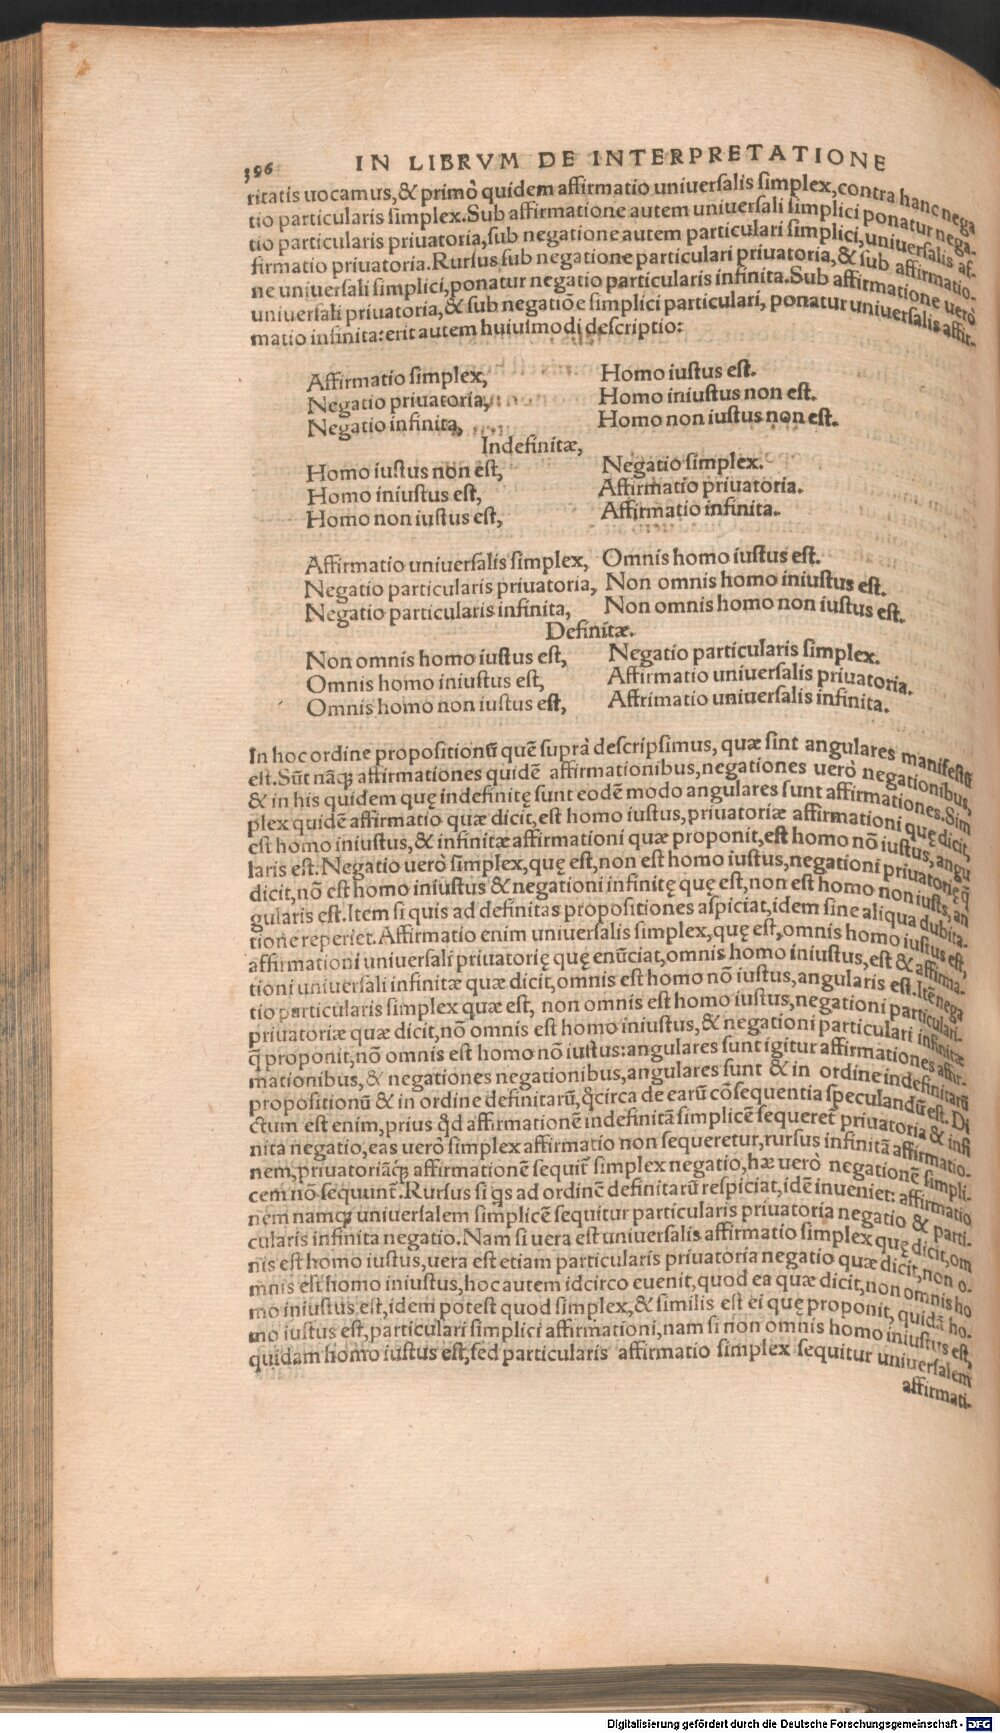 396 IN LIBRVM DE INTERPRETATIONE
ritatis uocamus,& primò quidem affirmatio uniuersalis simplex,contra hanc nega
tio particularis simplex.Sub affirmatione autem uniuersali simplici ponatur nega-
tio particularis priuatoria,sub negatione autem particulari simplici,uniuersalis af-
firmatio priuatoria.Rursus sub negatione particulari priuatoria,& sub affirmatio-
ne uniuersali simplici,ponatur negatio particularis infinita.Sub affirmatione uerò
uniuersali priuatoria,& sub negatiõe simplici particulari, ponatur uniuersalis affir-
matio infinita:erit autem huiusmodi descriptio:
Affirmatio simplex, Homo iustus est.
Negatio priuatoria, Homo iniustus non est.
Negatio infinita, Homo non iustus non est.
Indefinitæ,
Homo iustus non est, Negatio simplex.
Homo iniustus est, Affirmatio priuatoria.
Homo non iustus est, Affirmatio infinita.
Affirmatio uniuersalis simplex, Omnis homo iustus est.
Negatio particularis priuatoria, Non omnis homo iniustus est.
Negatio particularis infinita, Non omnis homo non iustus est.
Definitæ.
Non omnis homo iustus est, Negatio particularis simplex.
Omnis homo iniustus est, Affirmatio uniuersalis priuatoria.
Omnis homo non iustus est, Affrimatio uniuersalis infinita.
In hoc ordine propositionũ quẽ suprà descripsimus, quæ sint angulares manifestũ
est.Sũt nãq; affirmationes quidẽ affirmationibus,negationes uerò negationibus,
& in his quidem quę indefinitę sunt eodẽ modo angulares sunt affirmationes.Sim
plex quidẽ affirmatio quæ dicit,est homo iustus,priuatoriæ affirmationi quę dicit,
est homo iniustus,& infinitæ affirmationi quæ proponit,est homo nõ iustus,angu
laris est.Negatio uerò simplex,quę est,non est homo iustus,negationi priuatorię q̃
dicit,nõ est homo iniustus & negationi infinitę quę est,non est homo non iusts,an
gularis est.Item si quis ad definitas propositiones aspiciat,idem sine aliqua dubita-
tione reperiet.Affirmatio enim uniuersalis simplex,quę est,omnis homo iustus est,
affirmationi uniuersali priuatorię quę enũciat,omnis homo iniustus,est & affirma-
tioni uniuersali infinitæ quæ dicit,omnis est homo nõ iustus,angularis est.Itẽ nega
tio particularis simplex quæ est, non omnis est homo iustus,negationi particulari-
priuatoriæ quæ dicit,nõ omnis est homo iniustus,& negationi particulari infinitæ
q̃ proponit,nõ omnis est homo nõ iustus:angulares sunt igitur affirmationes affir-
mationibus,& negationes negationibus,angulares sunt & in ordine indefinitarũ
propositionũ & in ordine definitarũ,q̃circa de earũ cõsequentia speculandũ est.Di
ctum est enim,prius qđ affirmationẽ indefinitã simplicẽ sequeret̃ priuatoria & infi
nita negatio,eas uerò simplex affirmatio non sequeretur,rursus infinitã affirmatio-
nem,priuatoriãq́; affirmationẽ sequit̃ simplex negatio,hæ uerò negationẽ simpli-
cem nõ sequunt̃.Rursus si q̃s ad ordinẽ definitarũ respiciat,idẽ inueniet: affirmatio
nem namq; uniuersalem simplicẽ sequitur particularis priuatoria negatio & parti-
cularis infinita negatio.Nam si uera est uniuersalis affirmatio simplex quę dicit,om
nis est homo iustus,uera est etiam particularis priuatoria negatio quæ dicit,non o-
mnis est homo iniustus,hoc autem idcirco euenit,quod ea quæ dicit,non omnis ho
mo iniustus est,idem potest quod simplex,& similis est ei quę proponit, quidã ho-
mo iustus est,particulari simplici affirmationi,nam si non omnis homo iniustus est,
quidam homo iustus est,sed particularis affirmatio simplex sequitur uniuersalem
affirmati-
Digitalisierung gefördert durch die Deutsche Forschungsgemeinschaft - DFG